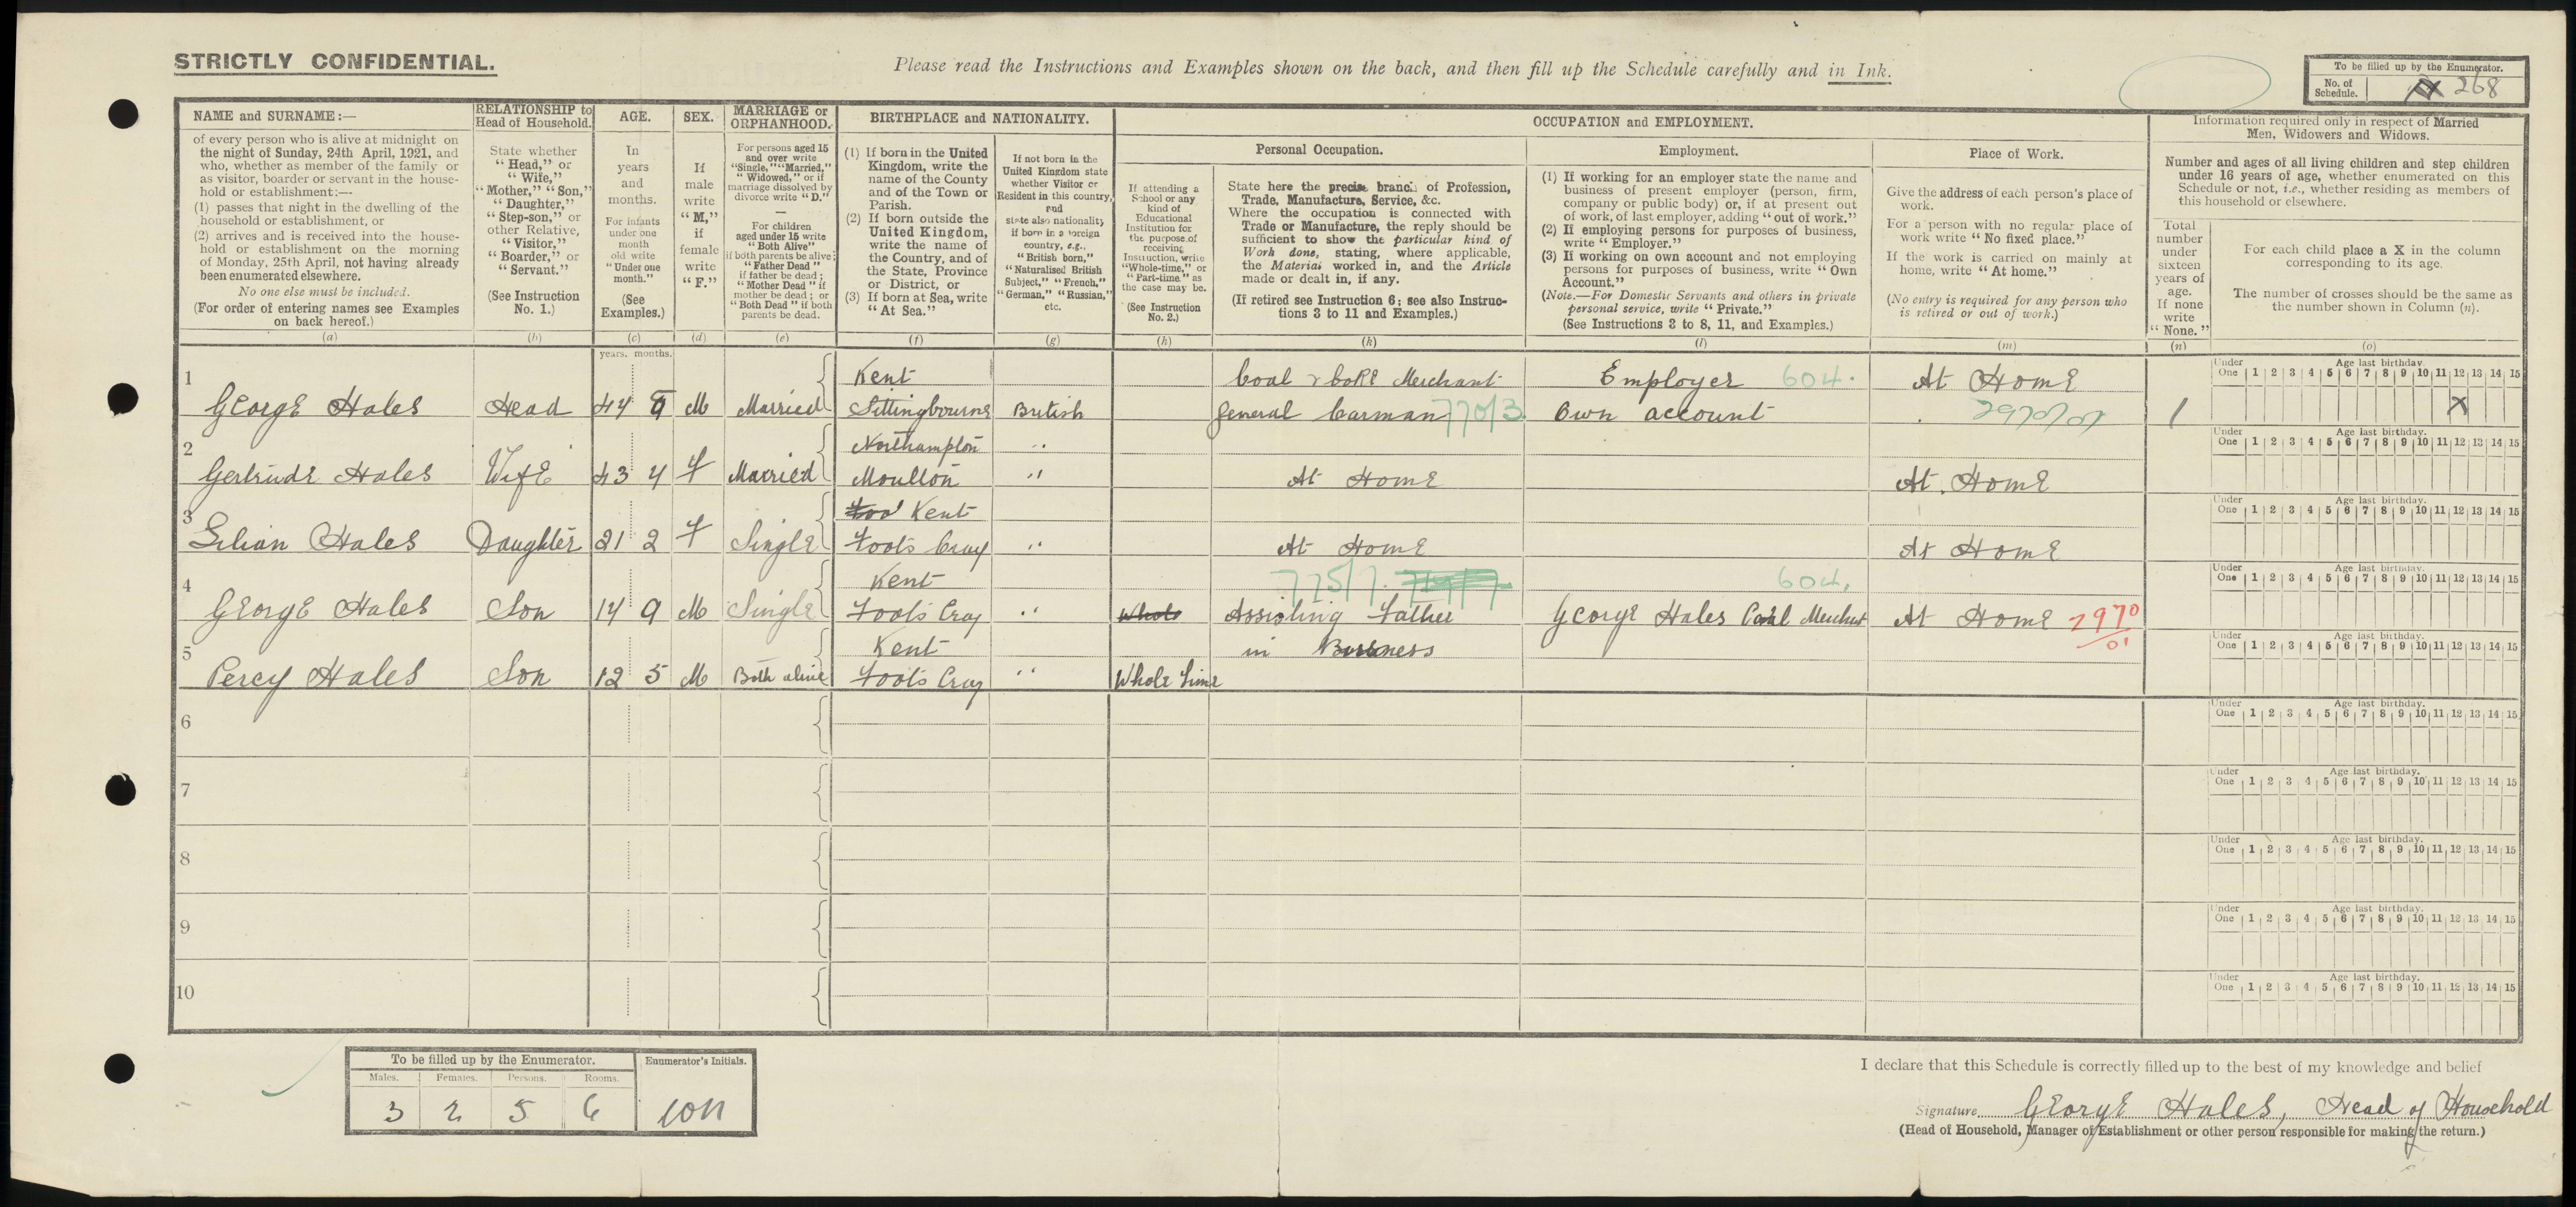 STRICTLY CONFIDENTIAL.
Please read the Instructions and Examples shown on the back, and then fill up the Schedule carefully and in Ink.
To be filled up by the Enumerator.
No. of Schedule. 268
NAME and SURNAME:—
of every person who is alive at midnight on
the night of Sunday, 24th April, 1921, and
who, whether as member of the family or
as visitor, boarder or servant in the house-
hold or establishment:—
(1) passes that night in the dwelling of the
household or establishment, or
(2) arrives and is received into the house-
hold or establishment on the morning
of Monday, 25th April, not having already
been enumerated elsewhere.
No one else must be included.
(For order of entering names see Examples
on back hereof.)
(a)
RELATIONSHIP to
Head of Household.
State whether
"Head," or
"Wife,"
"Mother," "Son,"
"Daughter,"
"Step-son," or
other Relative,
"Visitor,"
"Boarder," or
"Servant."
(See Instruction
No. 1.)
(b)
AGE.
In
years
and
months.
For infants
under one
month
old write
"Under one
month."
(See
Examples.)
(c)
SEX.
If
male
write
"M,"
if
female
write
"F."
(d)
MARRIAGE or
ORPHANHOOD.
For persons aged 15
and over write
"Single," "Married,"
"Widowed," or if
marriage dissolved by
divorce write "D."
For children
aged under 15 write
"Both Alive"
if both parents be alive;
"Father Dead"
if father be dead;
"Mother Dead" if
mother be dead; or
"Both Dead" if both
parents be dead.
(e)
BIRTHPLACE and NATIONALITY.
(1) If born in the United
Kingdom, write the
name of the County
and of the Town or
Parish.
(2) If born outside the
United Kingdom,
write the name of
the Country, and of
the State, Province
or District, or
(3) If born at Sea, write
"At Sea."
(f)
If not born in the
United Kingdom state
whether Visitor or
Resident in this country,
and
state also nationality
if born in a foreign
country, e.g.,
"British born,"
"Naturalised British
Subject," "French,"
"German," "Russian,"
etc.
(g)
OCCUPATION and EMPLOYMENT.
If attending a
School or any
kind of
Educational
Institution for
the purpose of
receiving
Instruction, write
"Whole-time," or
"Part-time" as
the case may be.
(See Instruction
No. 2.)
(h)
Personal Occupation.
State here the precise branch of Profession,
Trade, Manufacture, Service, &c.
Where the occupation is connected with
Trade or Manufacture, the reply should be
sufficient to show the particular kind of
Work done, stating, where applicable,
the Material worked in, and the Article
made or dealt in, if any.
(If retired see Instruction 6; see also Instruc-
tions 3 to 11 and Examples.)
(k)
Employment.
(1) If working for an employer state the name and
business of present employer (person, firm,
company or public body) or, if at present out
of work, of last employer, adding "out of work."
(2) If employing persons for purposes of business,
write "Employer."
(3) If working on own account and not employing
persons for purposes of business, write "Own
Account."
(Note.—For Domestic Servants and others in private
personal service, write "Private.")
(See Instructions 3 to 8, 11, and Examples.)
(l)
Place of Work.
Give the address of each person's place of
work.
For a person with no regular place of
work write "No fixed place."
If the work is carried on mainly at
home, write "At home."
(No entry is required for any person who
is retired or out of work.)
(m)
Information required only in respect of Married
Men, Widowers and Widows.
Number and ages of all living children and step children
under 16 years of age, whether enumerated on this
Schedule or not, i.e., whether residing as members of
this household or elsewhere.
Total
number
under
sixteen
years of
age.
If none
write
"None."
(n)
For each child place a X in the column
corresponding to its age.
The number of crosses should be the same as
the number shown in Column (n).
(o)
years. months.
Under One Age last birthday.
1 2 3 4 5 6 7 8 9 10 11 12 13 14 15
1 Kent Coal & Coke Merchant Employer 604. At Home
George Hales Head 44 9 M Married Sittingbourne British General Carman 770/3. Own account 1 X
2 Northampton
Gertrude Hales Wife 43 4 F Married Moulton " At Home At Home
3 Kent
Lilian Hales Daughter 21 2 F Single Foots Cray " At Home At Home
4 Kent 775/7. 604.
George Hales Son 14 9 M Single Foots Cray " Whole Assisting Father George Hales Coal Merchant At Home 2970/01
5 Kent in Business
Percy Hales Son 12 5 M Both alive Foots Cray " Whole Time
6
7
8
9
10
To be filled up by the Enumerator.
Enumerator's Initials.
Males. Females. Persons. Rooms.
3 2 5 6
I declare that this Schedule is correctly filled up to the best of my knowledge and belief
Signature George Hales, Head of Household
(Head of Household, Manager of Establishment or other person responsible for making the return.)